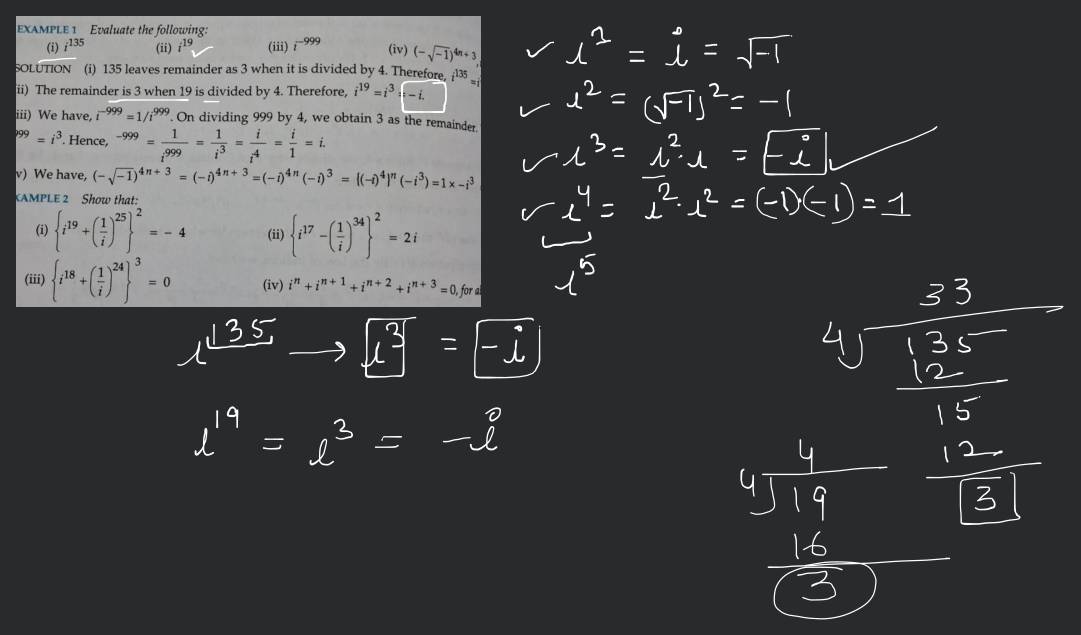 EXAMPLE 1 Evaluate the following:
(i) i^135 (ii) i^19 (iii) i^-999 (iv) (-√-1)^4n+3
SOLUTION (i) 135 leaves remainder as 3 when it is divided by 4. Therefore, i^135 = i
ii) The remainder is 3 when 19 is divided by 4. Therefore, i^19 = i^3 = -i.
iii) We have, i^-999 = 1/i^999. On dividing 999 by 4, we obtain 3 as the remainder.
999 = i^3. Hence, -999 = 1/i^999 = 1/i^3 = i/i^4 = i/1 = i.
v) We have, (-√-1)^4n+3 = (-i)^4n+3 = (-i)^4n (-i)^3 = {(-i)^4}^n (-i^3) = 1 × -i^3
XAMPLE 2 Show that:
(i) {i^19 + (1/i)^25}^2 = - 4 (ii) {i^17 - (1/i)^34}^2 = 2i
(iii) {i^18 + (1/i)^24}^3 = 0 (iv) i^n + i^n+1 + i^n+2 + i^n+3 = 0, for a
i^1 = i = √-1
i^2 = (√-1)^2 = -1
i^3 = i^2·i = -i
i^4 = i^2·i^2 = (-1)(-1) = 1
i^5
i^135 → i^3 = -i
i^19 = i^3 = -i
33
4 135
12
15
12
3
4
4 19
16
3